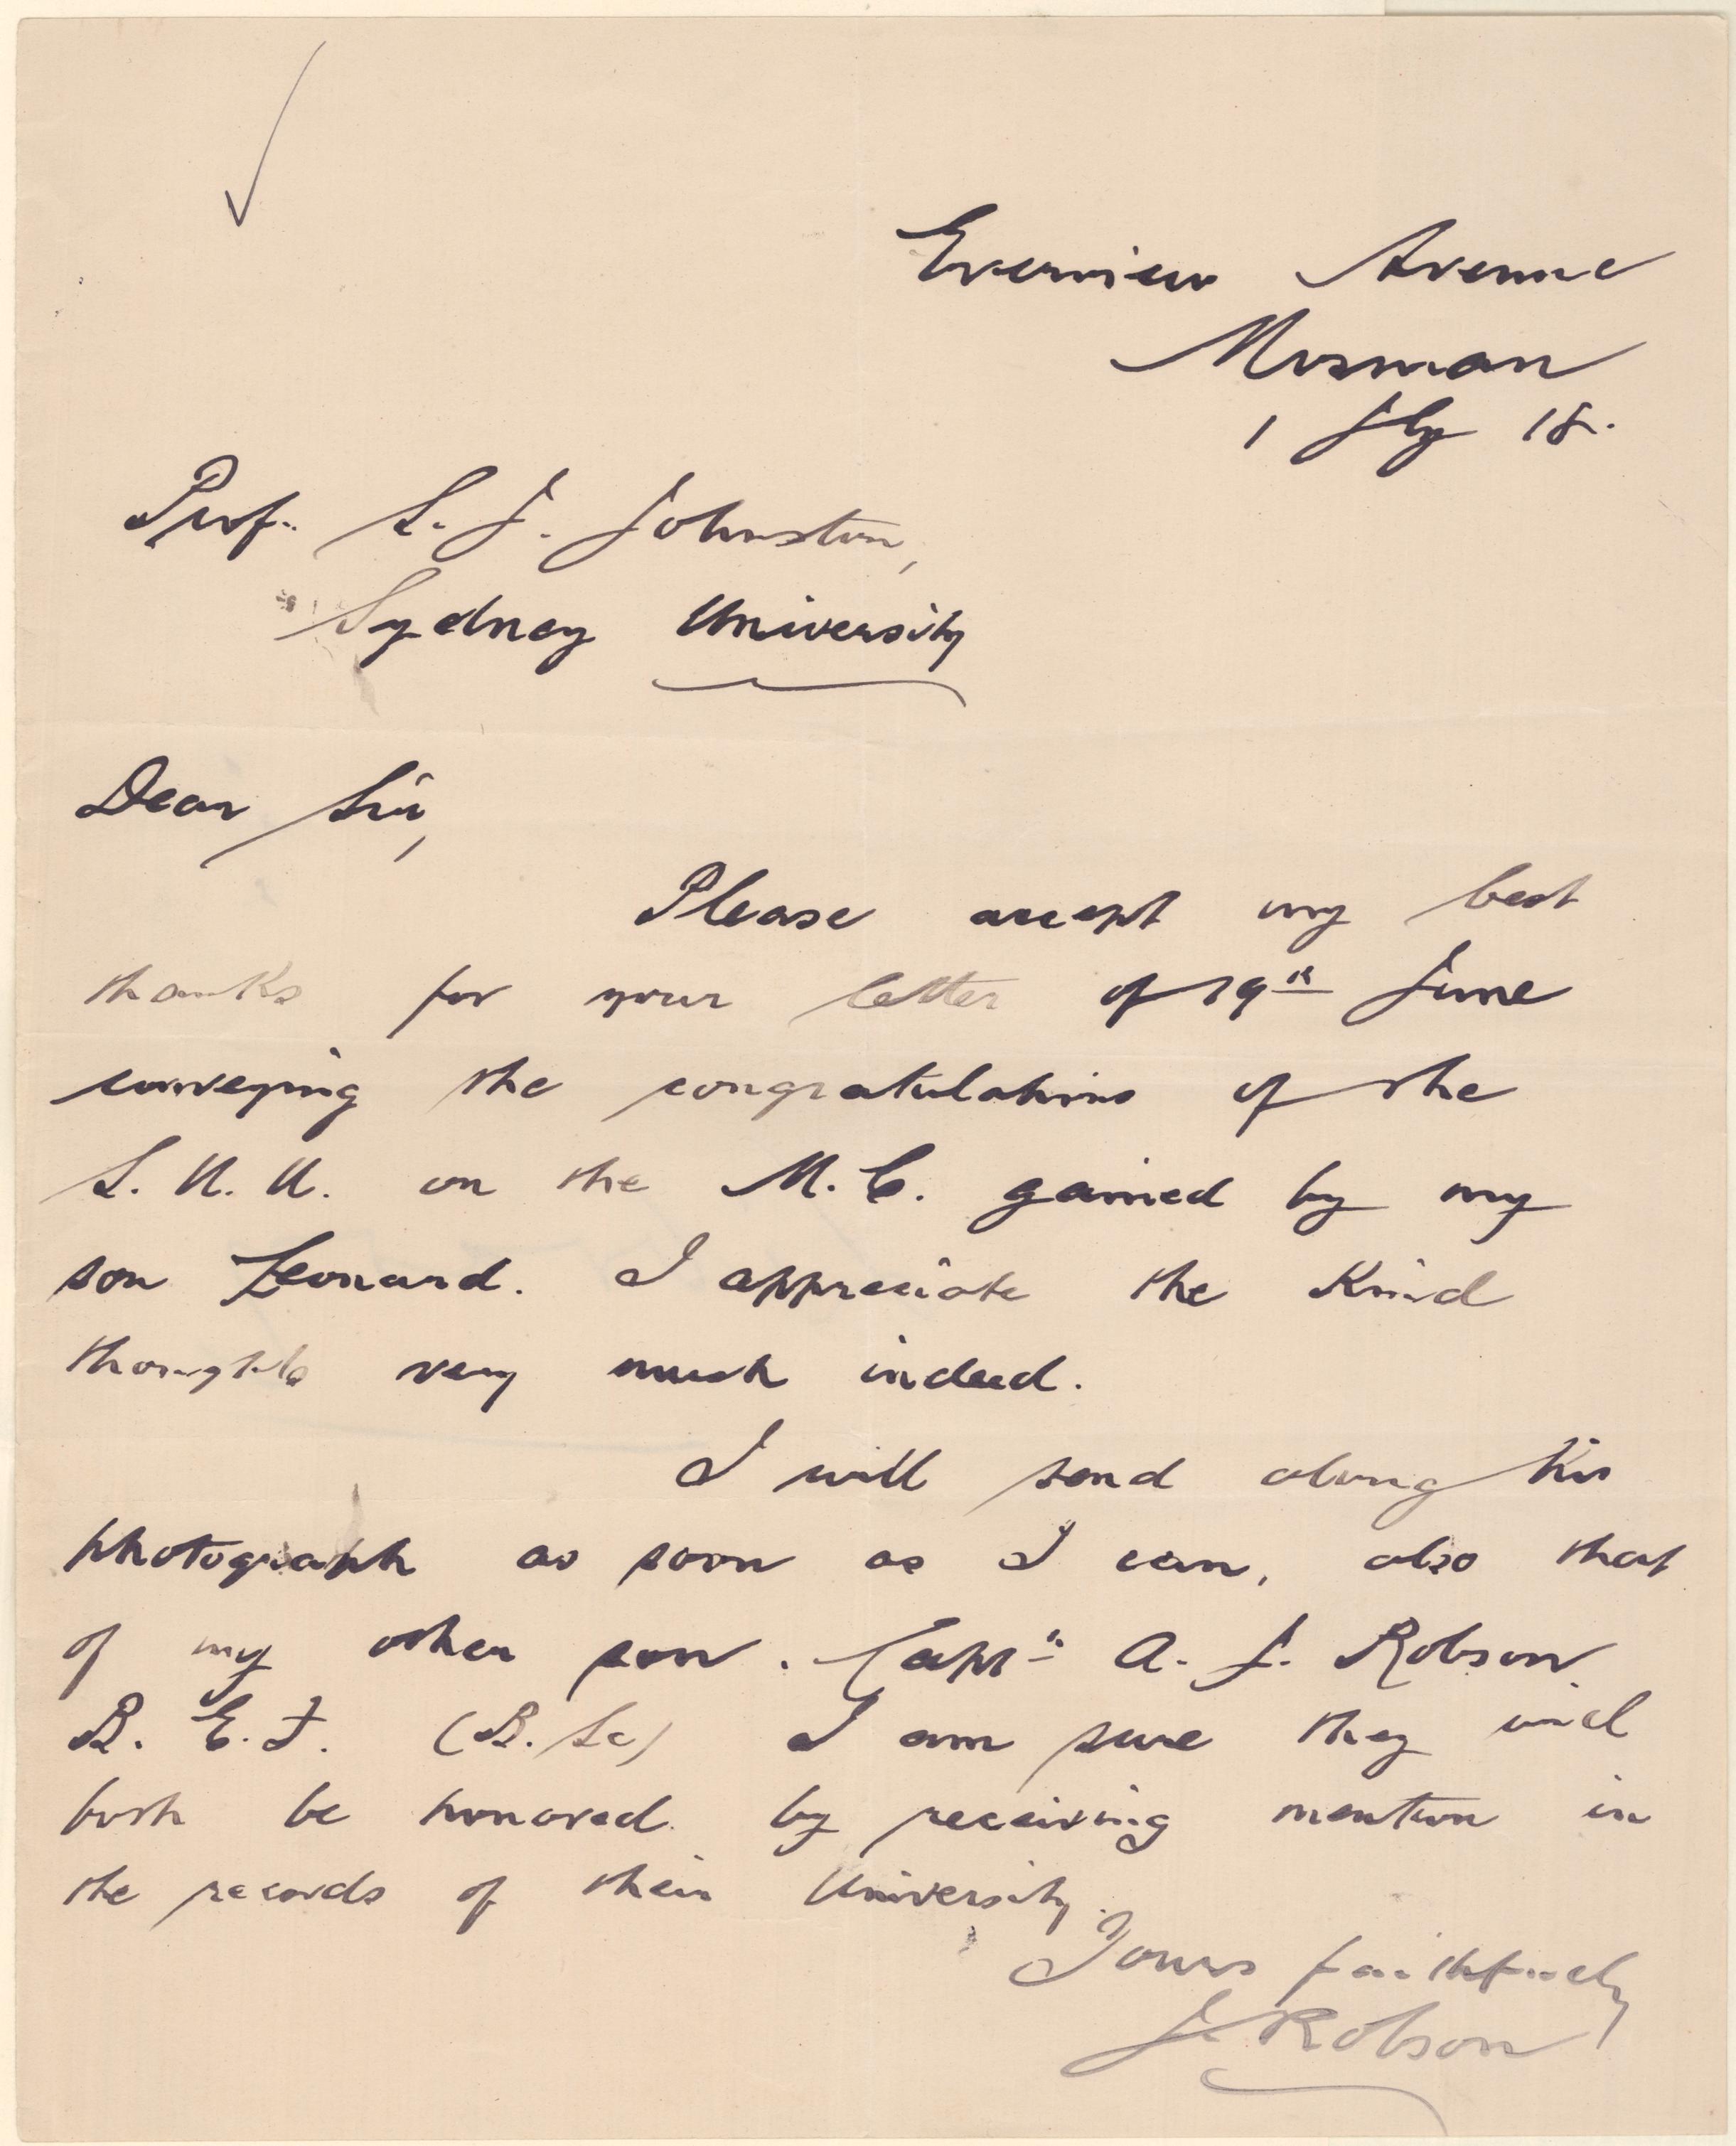 Everview Avenue
Mosman
1 Jly 18.
Prof. S. J. Johnston,
Sydney University
Dear Sir,
Please accept my best
thanks for your letter of 19th June
conveying the congratulations of the
S. U. U. on the M.C. gained by my
son Leonard. I appreciate the kind
thoughts very much indeed.
I will send along his
photograph as soon as I can, also that
of my other son. Captn A. J. Robson
B. E. F. (B. Sc) I am sure they will
both be honored by receiving mention in
the records of their University.
Yours faithfully
J. Robson